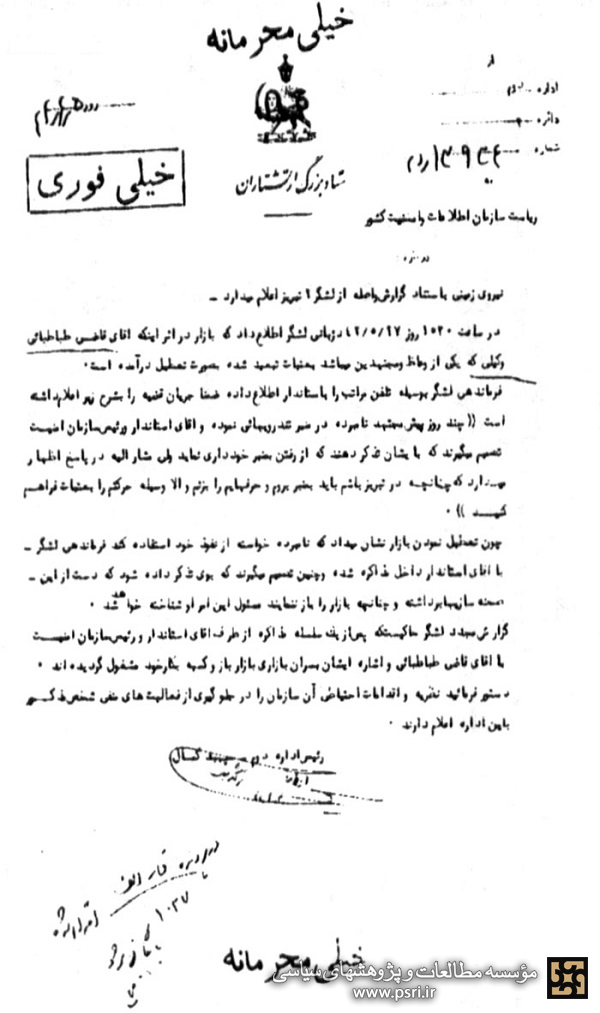 خیلی محرمانه
از
اداره
دائره
شماره
روز
خیلی فوری
ستاد بزرگ ارتشتاران
ریاست سازمان اطلاعات و امنیت کشور
درباره
نیروی زمینی باستناد گزارش واصله از لشگر ۲ تبریز اعلام میدارد -
در ساعت ۱۵۳۰ روز ۴۲/۵/۲۷ دژبانی لشگر اطلاع داد که بازار در اثر اینکه آقای قاضی طباطبائی
وکیلی که یکی از وعاظ و مجتهدین میباشد بعتبات تبعید شده بصورت تعطیل درآمده است .
فرماندهی لشگر بوسیله تلفن مراتب را باستاندار اطلاع داده ضمنا جریان قضیه را بشرح زیر اعلام داشته
است (( چند روز پیش مجتهد نامبرده در منبر تندرویهائی نموده و آقای استاندار و رئیس سازمان امنیت
تصمیم میگیرند که بایشان تذکر دهند که از رفتن بمنبر خودداری نماید ولی مشارالیه در پاسخ اظهار
میدارد که چنانچه در تبریز باشم باید بمنبر بروم و حرفهایم را بزنم والا وسیله حرکتم را بعتبات فراهم
کنید )) .
چون تعطیل نمودن بازار نشان میداد که نامبرده خواسته از نفوذ خود استفاده کند فرماندهی لشگر -
با آقای استاندار داخل مذاکره شده و چنین تصمیم میگیرند که بوی تذکر داده شود که دست از این -
صحنه سازیها برداشته و چنانچه بازار را باز ننمایند مسئول این امر او شناخته خواهد شد .
گزارش مجدد لشگر حاکیستکه پس از یک سلسله مذاکره از طرف آقای استاندار و رئیس سازمان امنیت
با آقای قاضی طباطبائی و اشاره ایشان بسران بازاری بازار باز و کسبه بکار خود مشغول گردیده اند .
دستور فرمائید نظریه و اقدامات احتیاطی آن سازمان را در جلوگیری از فعالیت های منفی شخص مذکور
باین اداره اعلام دارند .
رئیس اداره دوم
خیلی محرمانه
مؤسسه مطالعات و پژوهشهای سیاسی
www.psri.ir